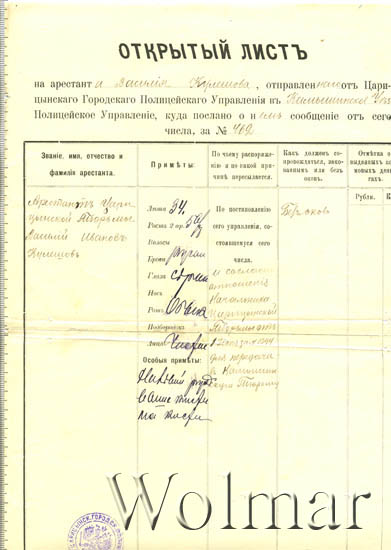 ОТКРЫТЫЙ ЛИСТЪ
на арестанта Василія Кулешова, отправленнаго отъ Цари-
цынскаго Городскаго Полицейскаго Управленія въ Камышинское Уѣз.
Полицейское Управленіе, куда послано о немъ сообщеніе отъ сего
числа, за № 469
Званіе, имя, отчество и
фамилія арестанта.
Примѣты:
По чьему распоряже-
нію и по какой при-
чинѣ пересылается.
Какъ долженъ со-
провождаться, зако-
ваннымъ или безъ
оковъ.
Отмѣтка о
выдаваемыхъ
мовыхъ день-
гахъ.
Рубли.
Арестантъ Цари-
цынской Тюрьмы
Василій Ивановъ
Кулешовъ
Лѣта 34.
Роста 2 ар. 5
Волосы
Брови русыя
Глаза сѣрые
Носъ
Ротъ обыкн
Подбородокъ
Лицо чистое
Особыя примѣты:
По постановленію
сего управленія, со-
стоявшемуся сего
числа.
и согласно
отношенія
Начальника
Царицынской
Тюрьмы отъ
для передачи
въ Камышин
скую Тюрьму
Безъ оковъ
Wolmar